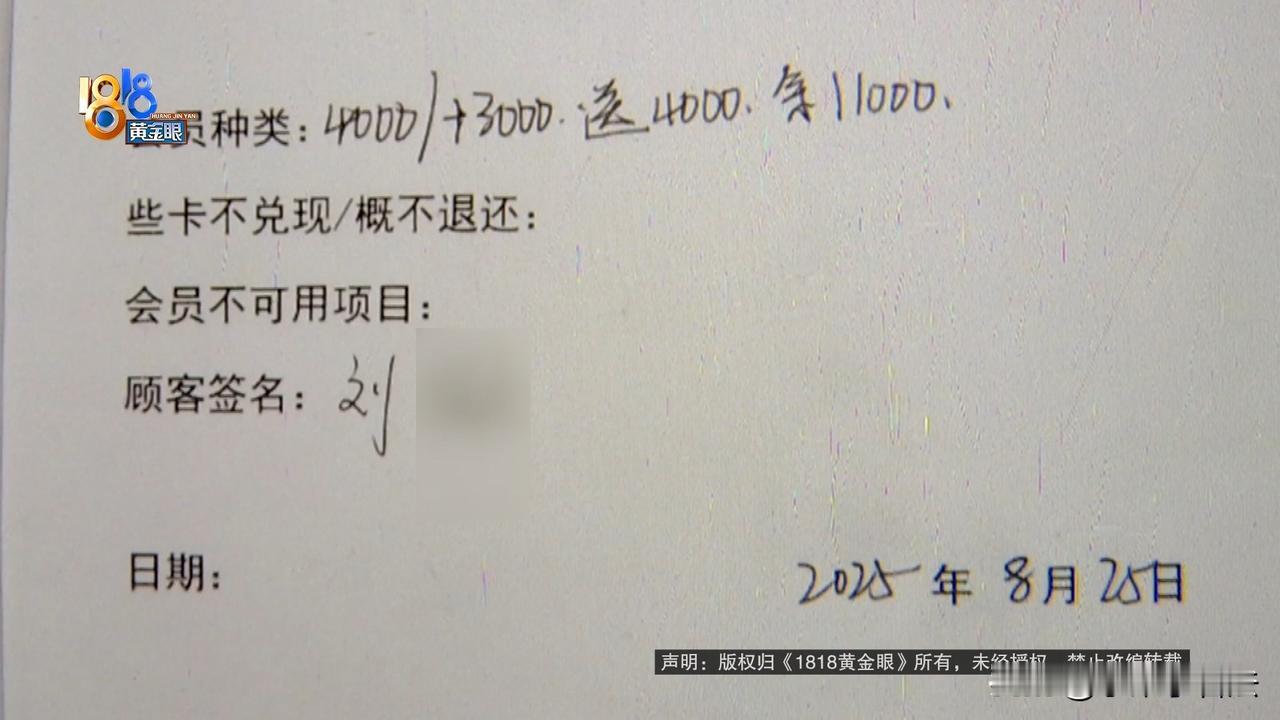 1818
HUANG JIN YAN
黄金眼
员种类：4000/+3000.送4000.余11000.
些卡不兑现/概不退还：
会员不可用项目：
顾客签名：刘
日期：
2025年8月25日
声明：版权归《1818黄金眼》所有，未经授权，禁止改编转载